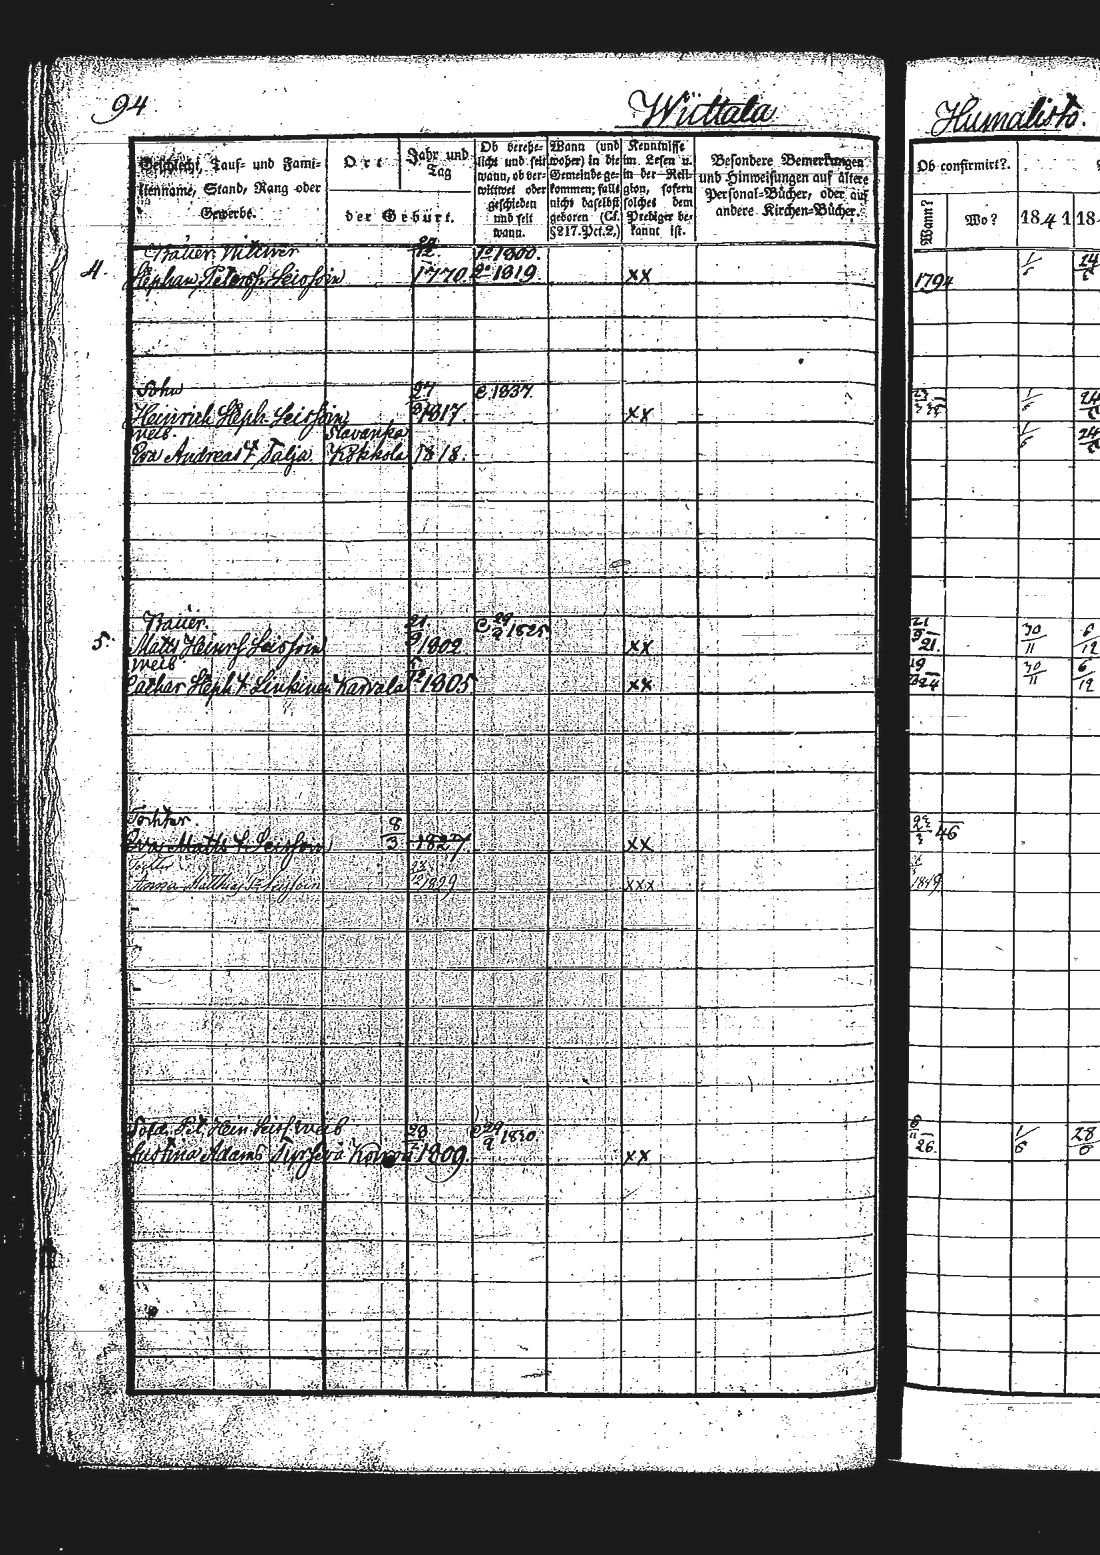 94
Wüttala
Humalisto.
Geschlecht, Tauf- und Fami-
lienname, Stand, Rang oder
Gewerbe.
Ort
der Geburt.
Jahr und
Tag
Ob verehe-
licht und seit
wann, ob ver-
wittwet oder
geschieden
und seit
wann.
Wann (und
woher) in die
Gemeinde ge-
kommen; falls
nicht daselbst
geboren (Cf.
§217.Pct.2.)
Kenntnisse
im Lesen u.
in der Reli-
gion, sofern
solches dem
Prediger be-
kannt ist.
Besondere Bemerkungen
und Hinweisungen auf ältere
Personal-Bücher, oder auf
andere Kirchen-Bücher.
Ob confirmirt?
Wann?
Wo?
1841
18
Bauer. Wittwer 1° 1800.
4. Stephan Petersf. Seissoin 1770. 2° 1819. xx 1794 1/6 24/6
Sohn 27 C. 1837.
Heinrich Steph. Seissoin 1817. xx 1/6 24/6
Weib. Slavanka 1/6 24/6
Eva Andreas T. Talja Kokkola 1818.
Bauer. 21 C 29/2 1825 21
5. Matts Heinrf Seissoin 9/1802. xx 21. 30/11 6/12
Weib 19
Cathar Steph T. Linkinen Karvala 12/1805 xx 24 30/11 6/12
Tochter. 8
Eva Matts T. Seissoin 3 1827. xx 46
Anna Matthias T. Seissoin 1829 xxx 1849
Sold. Pet. Hein. Seiss Weib 28 C 29/9 1830. 8/11 1/6 28/6
Justina Adams 1809. xx 26.